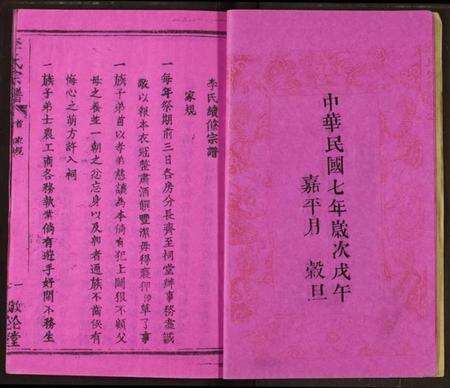 中華民國七年歲次戊午
嘉平月 穀旦
李氏續修宗譜
家規
一每年祭期前三日各房分長齊至祠堂辦事務盡誠
敬以報本衣冠整肅酒饌豐潔毋得褻狎草草了事
一族子弟首以孝弟慈讓為本倘有犯上鬪狠不顧父
母之養並一朝之忿忘身以及親者通族不齒俟有
悔心之萌方許入祠
一族子弟士農工商各務執業倘有遊手好閒不務生
李氏宗譜
卷首 家規
一
敦倫堂